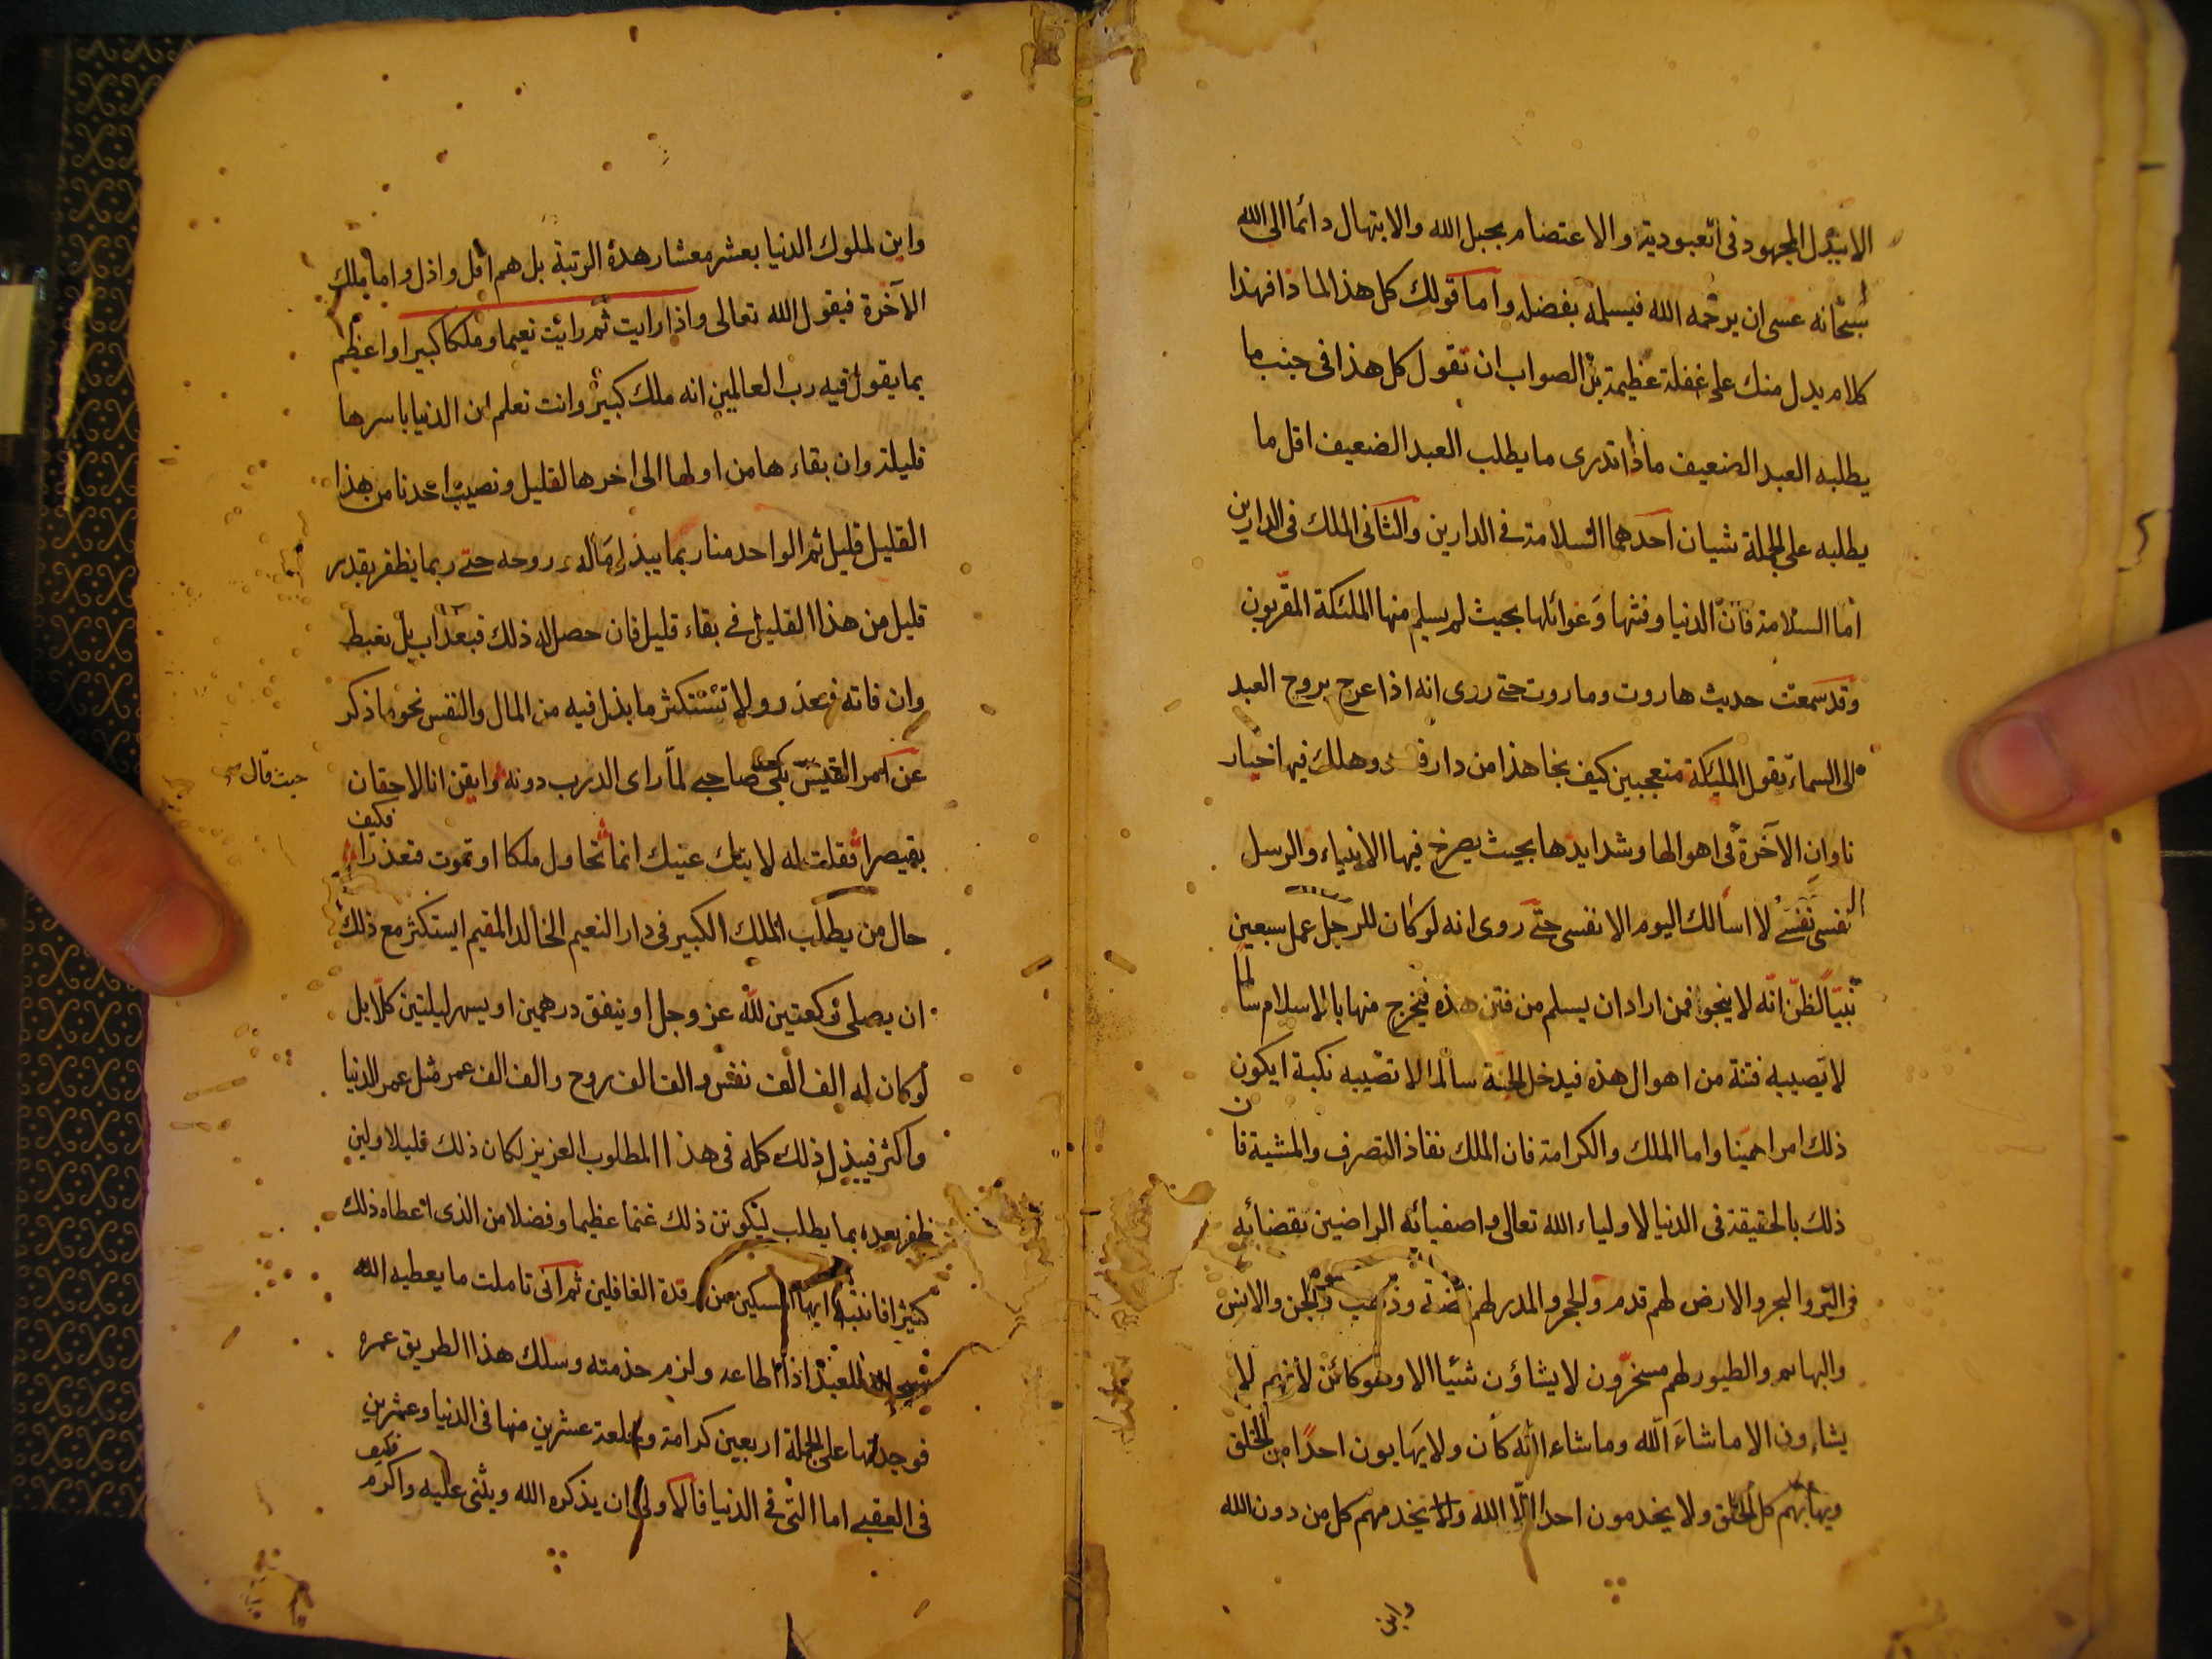 الا ببذل المجهود في العبودية والاعتصام بحبل الله والابتهال دائما الى الله
سبحانه عسى ان يرحمه الله فيسلمه بفضله واما قولك كل هذا لماذا فهذا
كلام يدل منك على غفلة عظيمة بل الصواب ان تقول كل هذا في جنب ما
يطلبه العبد الضعيف ماذا اتدرى ما يطلب العبد الضعيف اقل ما
يطلبه على الجملة شيان احدهما السلامة في الدارين والثانى الملك في الدارين
اما السلامة فان الدنيا وفتنها وغوائلها بحيث لم يسلم منها الملئكة المقربون
وقد سمعت حديث هاروت وماروت حتى روى انه اذا عرج بروح العبد
الى السماء تقول الملئكة متعجبين كيف نجا هذا من دار فسد وهلك فيها اخيار
نا وان الآخرة في اهوالها وشدايدها بحيث يصرخ فيها الانبياء والرسل
نفسى نفسى لا اسالك اليوم الا نفسى حتى روى انه لو كان للرجل عمل سبعين
نبيا لظن انه لا ينجوا فمن اراد ان يسلم من فتن هذه فيخرج منها بالاسلام سالما
لا تصيبه فتنة من اهوال هذه فيدخل الجنة سالما لا تصيبه نكبة ايكون
ذلك امرا هينا واما الملك والكرامة فان الملك نفاذ التصرف والمشية فان
ذلك بالحقيقة في الدنيا لاولياء الله تعالى واصفيائه الراضين بقضائه
فى البر والبحر والارض لهم قدم والحجر والمدر لهم فضة وذهب والجن والانس
والبهائم والطيور لهم مسخرون لا يشاؤن شئيا الا وهو كائن لانهم لا
يشاءون الا ما شاء الله وما شاء الله كان ولا يهابون احدا من الخلق
ويهابهم كل الخلق ولا يخدمون احدا الا الله ويخدمهم كل من دون الله
واين
واين لملوك الدنيا بعشر معشار هذه الرتبة بل هم اقل واذل واما ملك
الآخرة فيقول الله تعالى واذا رايت ثم رايت نعيما وملكا كبيرا واعظم
بما يقول فيه رب العالمين انه ملك كبير وانت تعلم ان الدنيا باسرها
قليلة وان بقاءها من اولها الى اخرها لقليل ونصيب احدنا من هذا
القليل قليل ثم الواحد منا ربما يبذل ماله وروحه حتى ربما يظفر بقدر
قليل من هذا القليل في بقاء قليل فان حصل له ذلك فبعذاب بل يغبط
وان فاته فيعذر ولا تستكثر ما بذل فيه من المال والنفس نحو ما ذكر
عن امر القيس بكى صاحبى لما راى الدرب دونه وايقن انا لاحقان
حيث قال
بقيصرا فقلت له لا تبك عينك انما نحاول ملكا او تموت فتعذرا
فكيف
حال من يطلب الملك الكبير في دار النعيم الخالد المقيم ايستكثر مع ذلك
ان يصلى ركعتين لله عز وجل او ينفق درهمين او يسهر ليلتين كلا بل
لو كان له الف الف نفس والف الف روح والف الف عمر مثل عمر الدنيا
واكثر فيبذل ذلك كله في هذا المطلوب العزيز لكان ذلك قليلا ولئن
ظفر بعده بما يطلب ليكونن ذلك غنما عظيما وفضلا من الذى اعطاه ذلك
كثيرا فانتبه ايها المسكين من رقدة الغافلين ثم انى تاملت ما يعطيه الله
سبحانه للعبد اذا اطاعه ولزم خذمته وسلك هذا الطريق عمره
فوجدتها على الجملة اربعين كرامة وخلعة عشرين منها في الدنيا وعشرين
في العقبى اما التى في الدنيا فالاولى ان يذكره الله ويثنى عليه واكرم
فكيف